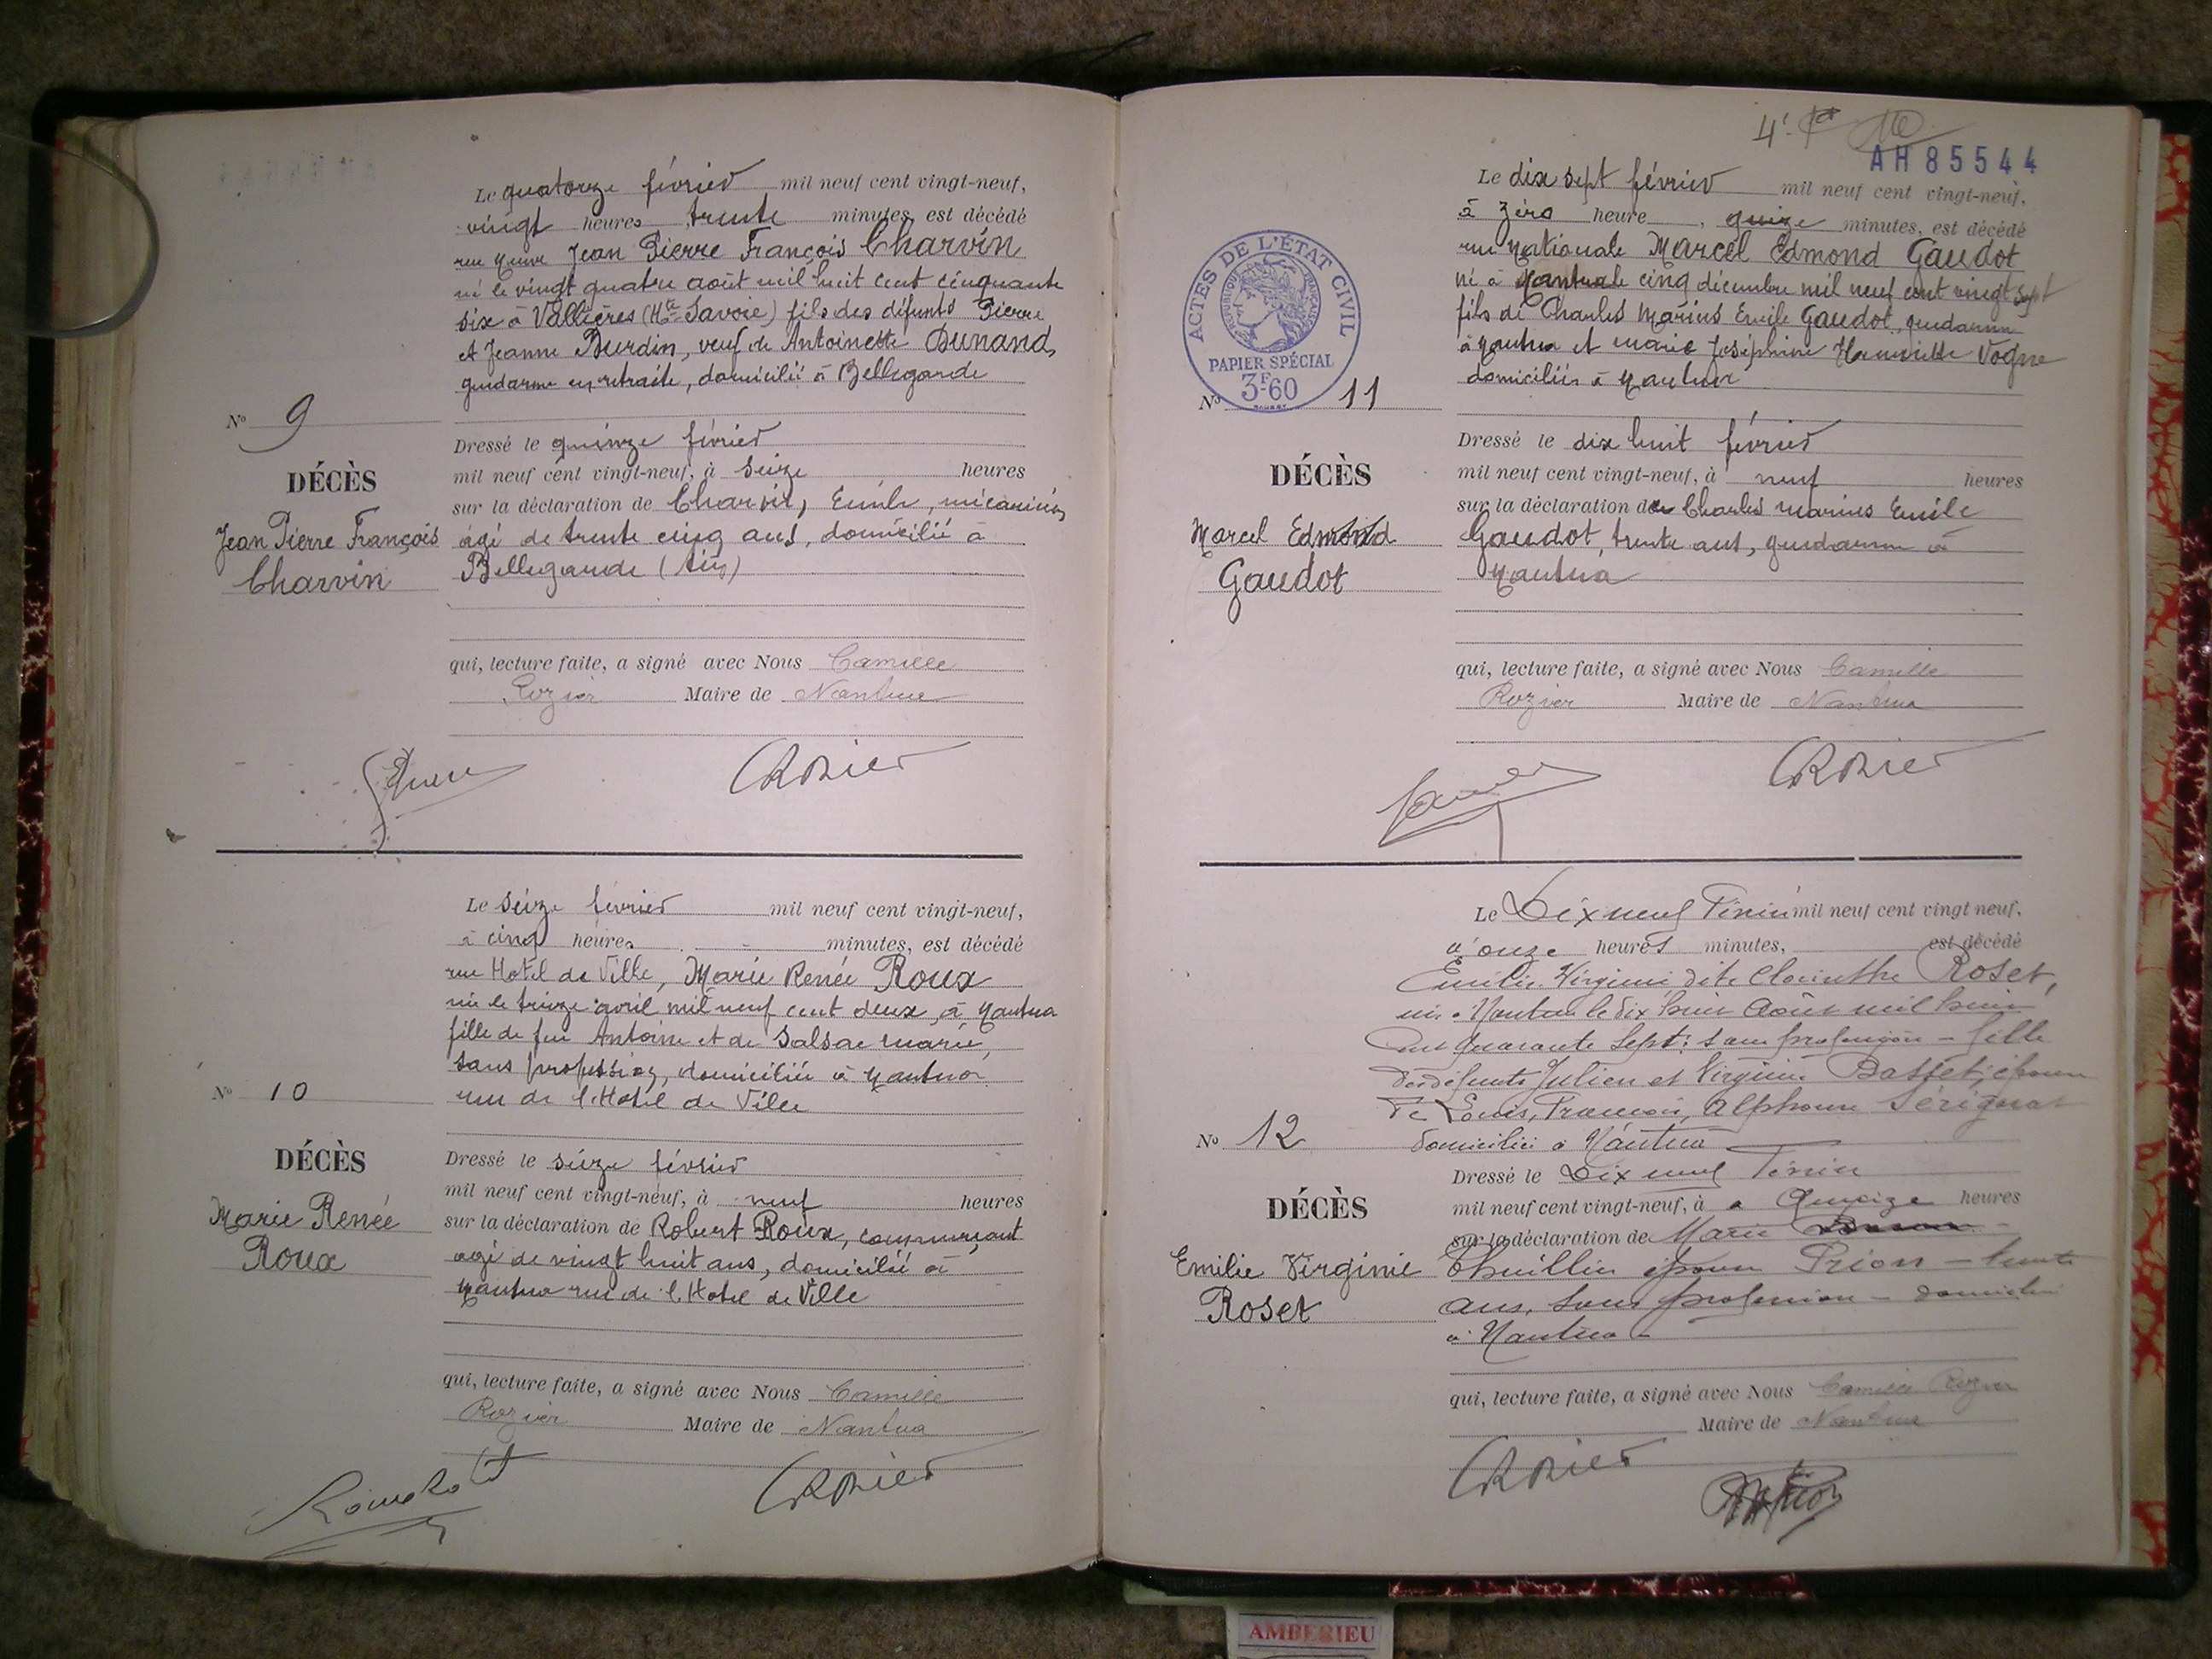 Le quatorze février mil neuf cent vingt-neuf,
vingt heures trente minutes, est décédé
rue Neuve Jean Pierre François Charvin
né le vingt quatre août mil huit cent cinquante
six à Vallières (Hte Savoie) fils des défunts Pierre
et Jeanne Burdin, veuf de Antoinette Dunand,
gendarme en retraite, domicilié à Bellegarde
N° 9
DÉCÈS
Jean Pierre François
Charvin
Dressé le quinze février
mil neuf cent vingt-neuf, à seize heures
sur la déclaration de Charvin, Emile, mécanicien
âgé de trente cinq ans, domicilié à
Bellegarde (Ain)
qui, lecture faite, a signé avec Nous Camille
Rozier Maire de Nantua
CRozier
Le seize février mil neuf cent vingt-neuf,
à cinq heures - minutes, est décédé
rue Hotel de Ville, Marie Renée Roux
née le treize avril mil neuf cent deux, à Nantua
fille de feu Antoine et de Salsac Marie,
sans profession, domiciliée à Nantua
rue de l'Hotel de Ville
N° 10
DÉCÈS
Marie Renée
Roux
Dressé le seize février
mil neuf cent vingt-neuf, à neuf heures
sur la déclaration de Robert Roux, commerçant
agé de vingt huit ans, domicilié à
Nantua rue de l'Hotel de Ville
qui, lecture faite, a signé avec Nous Camille
Rozier Maire de Nantua
CRozier
4e
AH 85544
ACTES DE L'ÉTAT CIVIL
RÉPUBLIQUE FRANÇAISE
PAPIER SPÉCIAL
3F-60
Le dix sept février mil neuf cent vingt-neuf,
à zéro heure, quinze minutes, est décédé
rue Nationale Marcel Edmond Gaudot
né à Nantua le cinq décembre mil neuf cent vingt sept
fils de Charles Marius Emile Gaudot, gendarme
à Nantua et Marie Joséphine Henriette Vogne
domiciliés à Nantua
N° 11
DÉCÈS
Marcel Edmond
Gaudot
Dressé le dix huit février
mil neuf cent vingt-neuf, à neuf heures
sur la déclaration de Charles Marius Emile
Gaudot, trente ans, gendarme à
Nantua
qui, lecture faite, a signé avec Nous Camille
Rozier Maire de Nantua
CRozier
Le Dix neuf Février mil neuf cent vingt neuf,
à onze heures minutes, est décédé
Emilie Virginie dite Clorinthe Roset,
née à Nantua le dix huit Août mil huit
cent quarante sept: sans profession - fille
des défunts Julien et Virginie Basset, épouse
de Louis, François, Alphonse Sérignat
domiciliée à Nantua
N° 12
DÉCÈS
Emilie Virginie
Roset
Dressé le Dix neuf Février
mil neuf cent vingt-neuf, à a Quinze heures
sur la déclaration de Marie
Thuillin épouse Prion - trente
ans, sans profession - domiciliée
à Nantua
qui, lecture faite, a signé avec Nous Camille Rozier
Maire de Nantua
CRozier
AMBERIEU